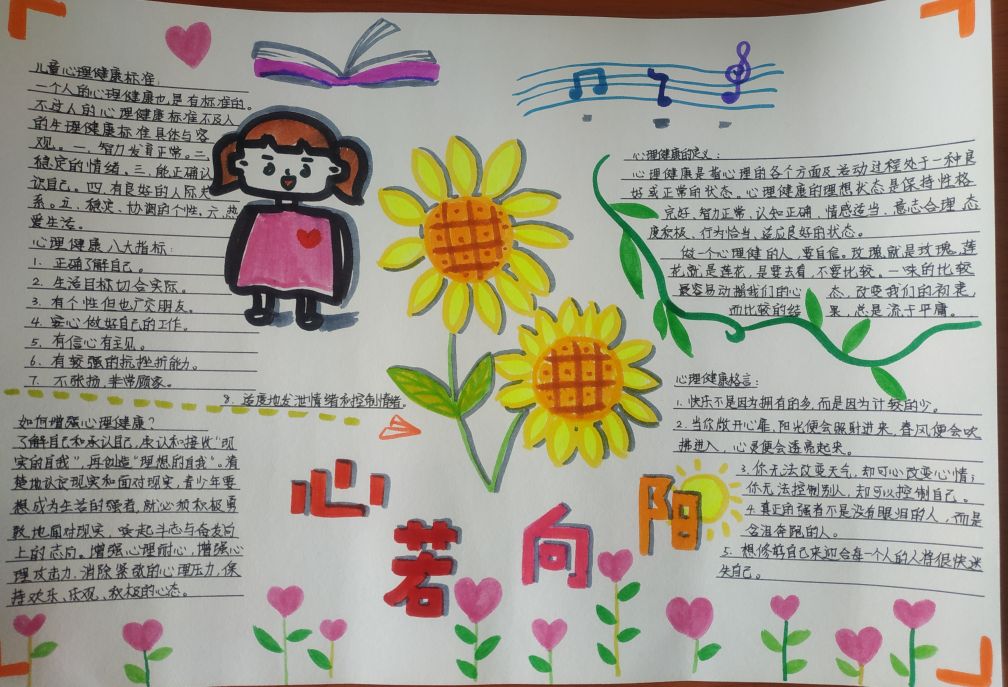 儿童心理健康标准:
一个人的心理健康也是有标准的。
不过人的心理健康标准不及人
的生理健康标准具体与客
观。一、智力发育正常。二、
稳定的情绪。三、能正确认
识自己。四、有良好的人际关
系。五、稳定、协调的个性。六、热
爱生活。
心理健康八大指标:
1、正确了解自己。
2、生活目标切合实际。
3、有个性但也广交朋友。
4、安心做好自己的工作。
5、有信心有主见。
6、有较强的抗挫折能力。
7、不张扬,非常顾家。
8、适度地发泄情绪和控制情绪。
如何增强心理健康?
了解自己和承认自己,承认和接收“现
实的自我”,再创造“理想的自我”。清
楚地认识现实和面对现实,青少年要
想成为生活的强者,就必须积极勇
敢地面对现实,唤起斗志与奋发向
上的志向。增强心理耐心,增强心
理攻击力,消除紧张的心理压力,保
持欢乐、乐观、积极的心态。
心理健康的定义:
心理健康是指心理的各个方面及活动过程处于一种良
好或正常的状态。心理健康的理想状态是保持性格
完好、智力正常、认知正确、情感适当、意志合理、态
度积极、行为恰当、适应良好的状态。
做一个心理健的人,要自信。玫瑰就是玫瑰,莲
花就是莲花,是要去看,不要比较。一味的比较
最容易动摇我们的心态,改变我们的初衷,
而比较的结果,总是流于平庸。
心理健康格言:
1、快乐不是因为拥有的多,而是因为计较的少。
2、当你敞开心扉,阳光便会照射进来,春风便会吹
拂进入,心灵便会透亮起来。
3、你无法改变天气,却可心改变心情;
你无法控制别人,却可以控制自己。
4、真正的强者不是没有眼泪的人,而是
含泪奔跑的人。
5、想修剪自己来迎合每一个人的人将很快迷
失自己。
心若向阳